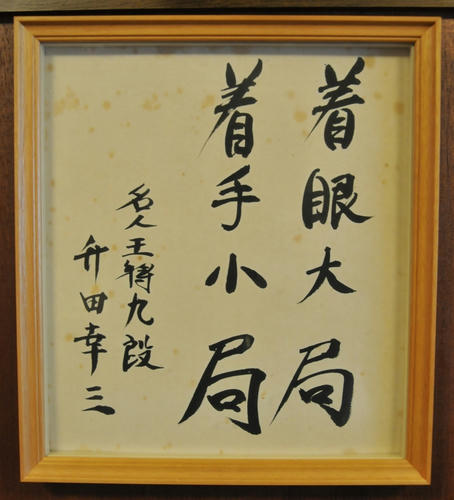 着眼大局
着手小局
名人王将九段
升田幸三